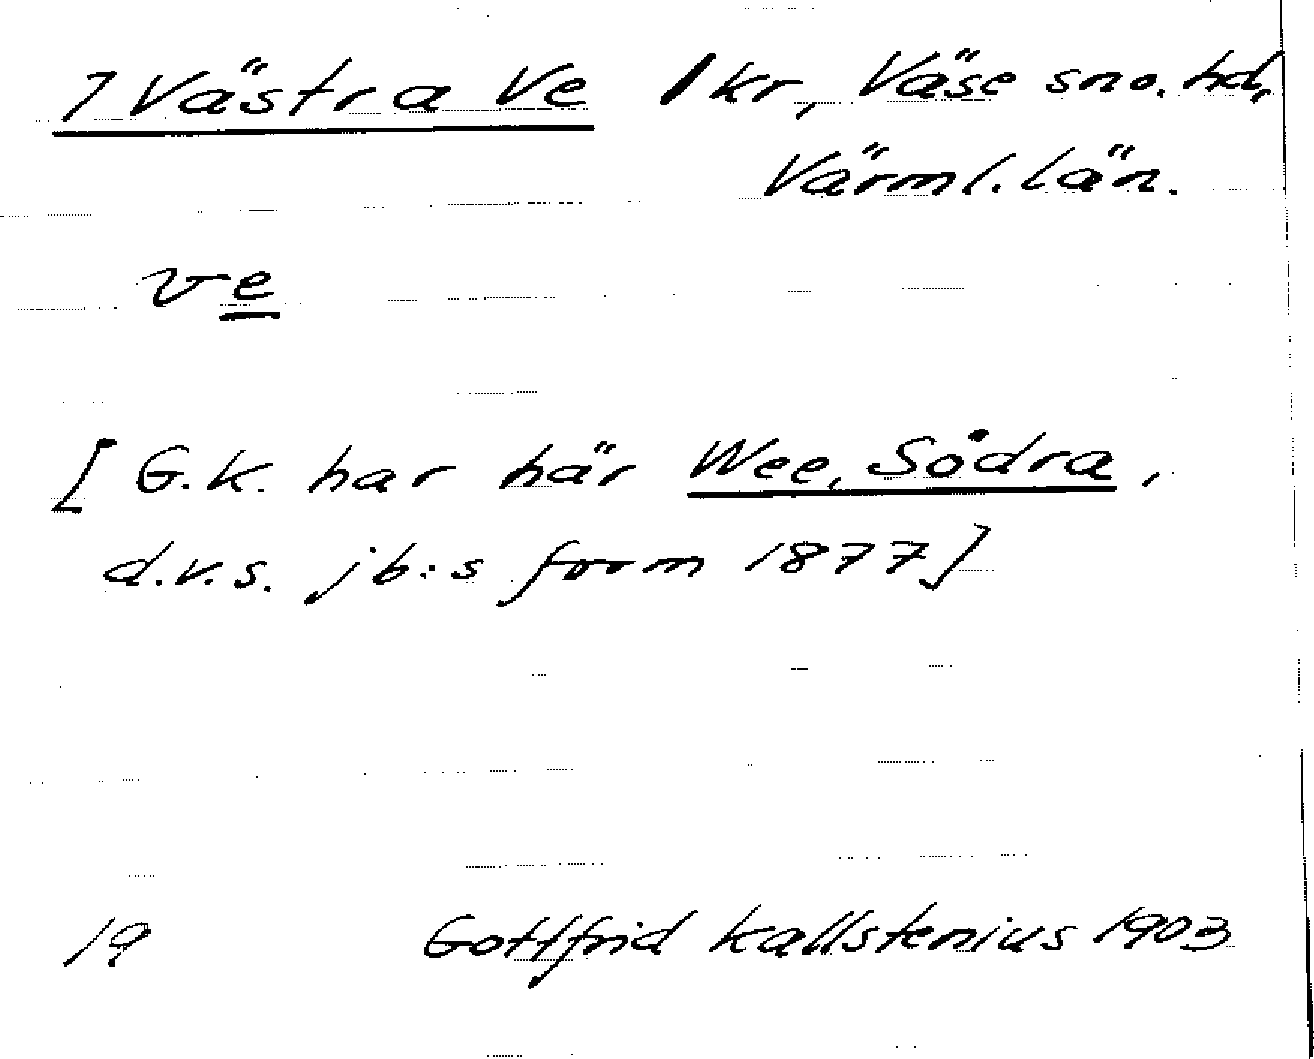 7 Västra Ve 1 kr, Väse sno. hd,
Värml. län.
ve
[ G.K. har här Wee, Södra,
d.v.s. jb:s form 1877]
19 Gottfrid Kallstenius 1903